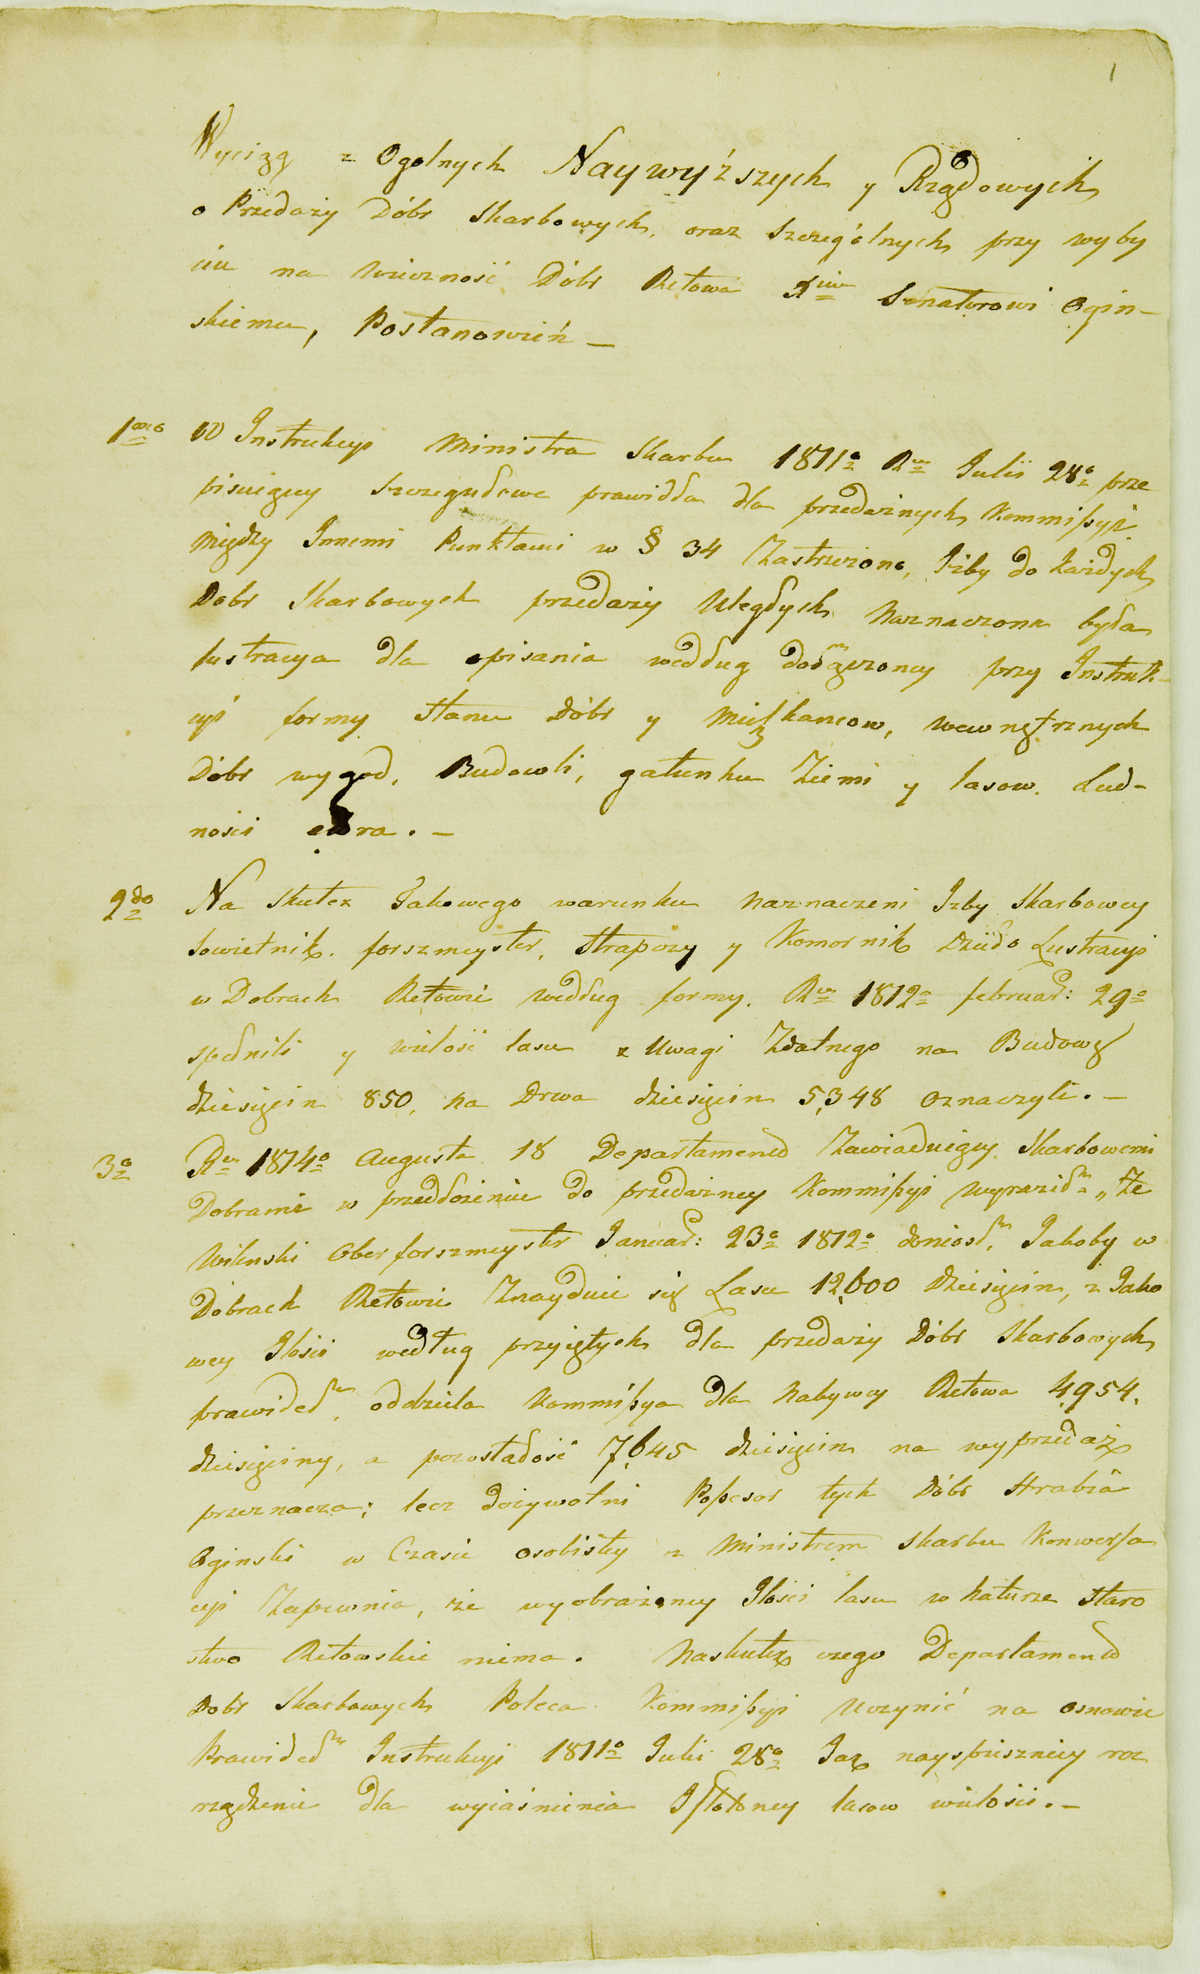 1
Wyciąg z Ogolnych Naywyższych y Rządowych
o Przedaży Dóbr Skarbowych, oraz Szczególnych przy wyby
ciu na wieczność Dóbr Retowa Xciu Senatorowi Ogin-
skiemu, Postanowień —
1mo W Instrukcyi Ministra Skarbu 1811o Ru Julii 28o prze
pisuiący Szczegułowe prawidła dla przedażnych Kommissyi
między Innemi Punktami w § 34 Zastrzeżono, Iżby do każdych
Dobr Skarbowych przedaży Uległych Naznaczona była
lustracya dla opisania według dołączoney przy Instruk-
cyi formy stanu Dóbr y Mieszkancow, wewnętrznych
Dóbr wygod, Budowli, gatunku Ziemi y lasow. Lud-
nosci . —
2do Na skutek takowego warunku naznaczeni Izby Skarbowey
Sowietnik, forszmeyster, Strapczy y Komornik Lustracyi
w Dobrach Retowie według formy. Ru 1812o februar: 29o
spełnili y wielość lasu z Uwagi Zdatnego na Budowę
dziesięcin 850, na Drwa dziesięcin 5,348 oznaczyli. —
3o Ru 1814o Augusta 18 Departament Zawiaduiący Skarbowemi
Dobrami w przełożeniu do przedażney Kommissyi wyraził „Że
Wilenski Ober forszmeyster Januar: 23o 1812o doniosł, Jakoby w
Dobrach Retowie Znayduie się Lasu 12,600 Dziesięcin, z Jako
wey Ilosci według przyiętych dla przedaży Dóbr Skarbowych
prawideł, oddziela Kommissya dla Nabywcy Retowa 4,954.
dziesięciny, a pozostałość 7,645 dziesięcin na wyprzedaż
przeznacza; lecz dożywotni Possesor tych Dóbr Hrabia
Oginski w Czasie osobistey z Ministrem Skarbu Konwersa
cyi Zapewnia, że wyobrażoney Ilosci lasu w Naturze Staro
stwo Retowskie niema. Naskutek czego Departament
Dobr Skarbowych Poleca Kommissyi Uczynić na osnowie
Prawideł Instrukcyi 1811o Julii 28o Jak nayspieszniey roz
rządzenie dla wyiaśnienia Istotney lasow wielości. —